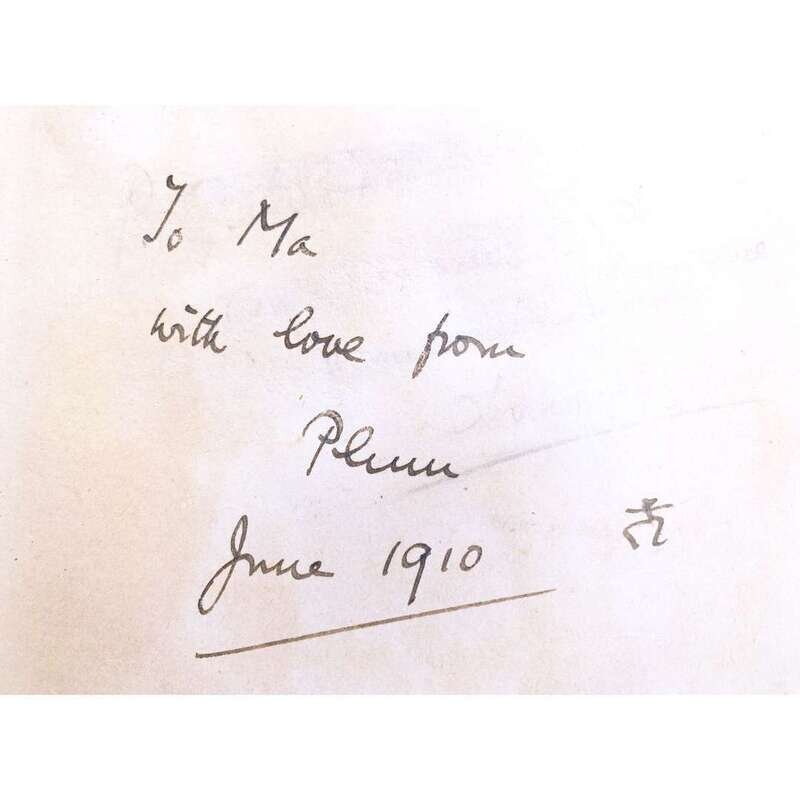 To Ma
with love from
Plum
June 1910